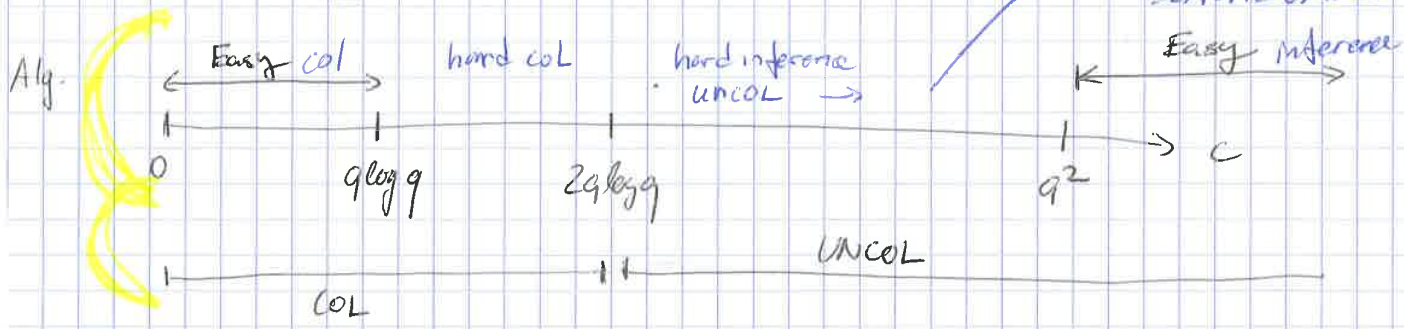 Alg.
Easy col hard coL hard inference Easy inference
uncoL →
0 qlogq 2qlogq q² c
COL UNCOL